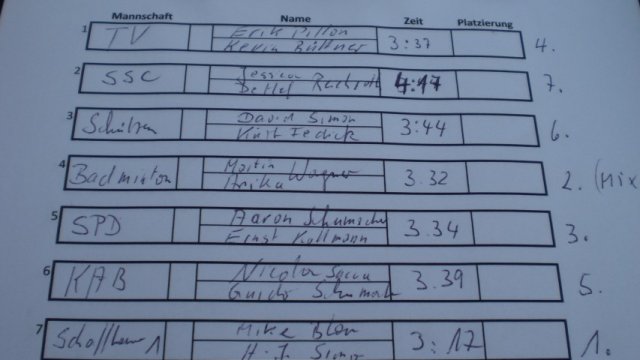 Mannschaft Name Zeit Platzierung
1 TV Erik Pillon 3:37 4.
Kevin Büttner
2 SSC Jessica 4:17 7.
Detlef
3 Schützen David Simon 3:44 6.
Kurt
4 Badminton Martin Wagner 3.32 2. (Mix
Anika
5 SPD Aaron Schumacher 3.34 3.
Ernst Kollmann
6 KAB Nicola 3.39 5.
Guido
7 1 Mike 3:17 1.
H.J. Simon